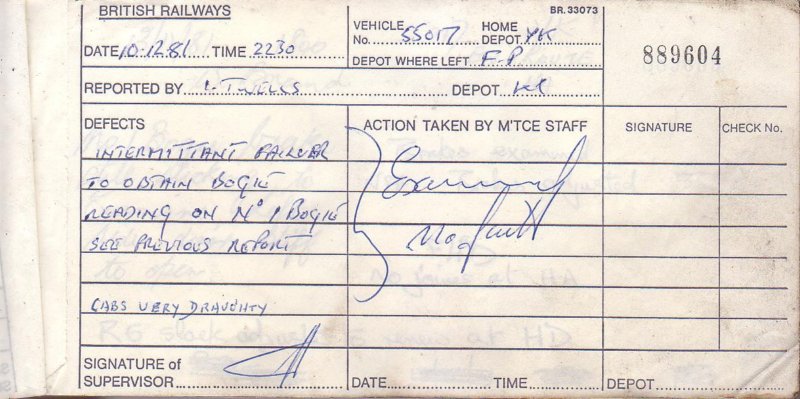 BRITISH RAILWAYS
BR. 33073
VEHICLE No. 55017 HOME DEPOT. YK
DATE 10.12.81 TIME 2230
DEPOT WHERE LEFT F-P
889604
REPORTED BY TWELLS DEPOT
DEFECTS
ACTION TAKEN BY M'TCE STAFF
SIGNATURE
CHECK No.
INTERMITTANT FAILUER
TO OBTAIN BOGIE
READING ON No 1 BOGIE
SEE PREVIOUS REPORT
CABS VERY DRAUGHTY
Examined
No fault
SIGNATURE of SUPERVISOR
DATE TIME DEPOT